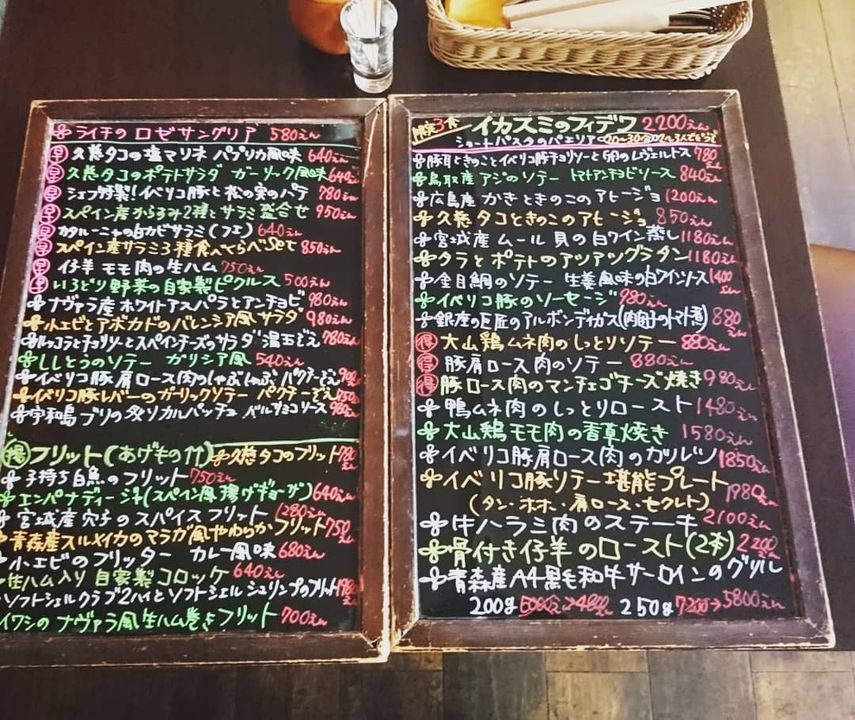 ライチのロゼサングリア 580えん
早 久慈タコの塩マリネ パプリカ風味 640えん
早 久慈タコのポテトサラダ ガーリック風味 640えん
早 シェフ特製!イベリコ豚と松の実のパテ 780えん
早 スペイン産からみ2種とサラミ盛合せ 950えん
早 カタルーニャの白カビサラミ(フエ) 640えん
早 スペイン産サラミ3種食べくらべSet 850えん
早 仔羊モモ肉の生ハム 750えん
早 いろどり野菜の自家製ピクルス 500えん
ナヴァラ産ホワイトアスパラとアンチョビ 980えん
小エビとアボカドのバレンシア風サラダ 980えん
ルッコラとチョリソーとスペインチーズのサラダ 温玉ぞえ 780えん
ししとうのソテー ガリシア風 540えん
イベリコ豚肩ロース肉のしゃぶしゃぶ パクチーぞえ
イベリコ豚レバーのガーリックソテー パクチーぞえ
宇和島ブリの炙りカルパッチョ バルサミコソース
揚 フリット(あげもの!!) 久慈タコのフリット 780えん
子持ち白魚のフリット 750えん
エンパナディージャ(スペイン風揚げギョーザ) 640えん
宮城産穴子のスパイスフリット 1280えん
青森産スルメイカのマラガ風やわらかフリット 750えん
小エビのフリッター カレー風味 680えん
生ハム入り自家製コロッケ 640えん
ソフトシェルクラブ2ハイとソフトシェルシュリンプのフリット
イワシのナヴァラ風生ハム巻きフリット 700えん
限定3食 イカスミのフィデワ 2200えん
ショートパスタのパエリア 20〜30分 2〜3人でどうぞ
豚耳ときのことイベリコ豚チョリソーと卵のレヴェルトス 780えん
鳥取産アジのソテー トマトアンチョビソース 840えん
広島産かきときのこのアヒージョ 1200えん
久慈タコときのこのアヒージョ 850えん
宮城産ムール貝の白ワイン蒸し 1180えん
タラとポテトのアツアツグラタン 1180えん
金目鯛のソテー 生姜風味の白ワインソース 1400えん
イベリコ豚のソーセージ 980えん
銀座の巨匠のアルボンディガス(肉団子のトマト煮) 880えん
得 大山鶏ムネ肉のしっとりソテー 880えん
得 豚肩ロース肉のソテー 880えん
得 豚ロース肉のマンチェゴチーズ焼き 980えん
鴨ムネ肉のしっとりロースト 1480えん
大山鶏モモ肉の香草焼き 1580えん
イベリコ豚肩ロース肉のガルシソ 1850えん
イベリコ豚ソテー堪能プレート 1980えん
(タン・ホホ・肩ロース・セクレト)
牛ハラミ肉のステーキ 2100えん
骨付き仔羊のロースト(2本) 2200えん
青森産A4黒毛和牛サーロインのグリル
200g 5000えん→4800えん 250g 7200→5800えん